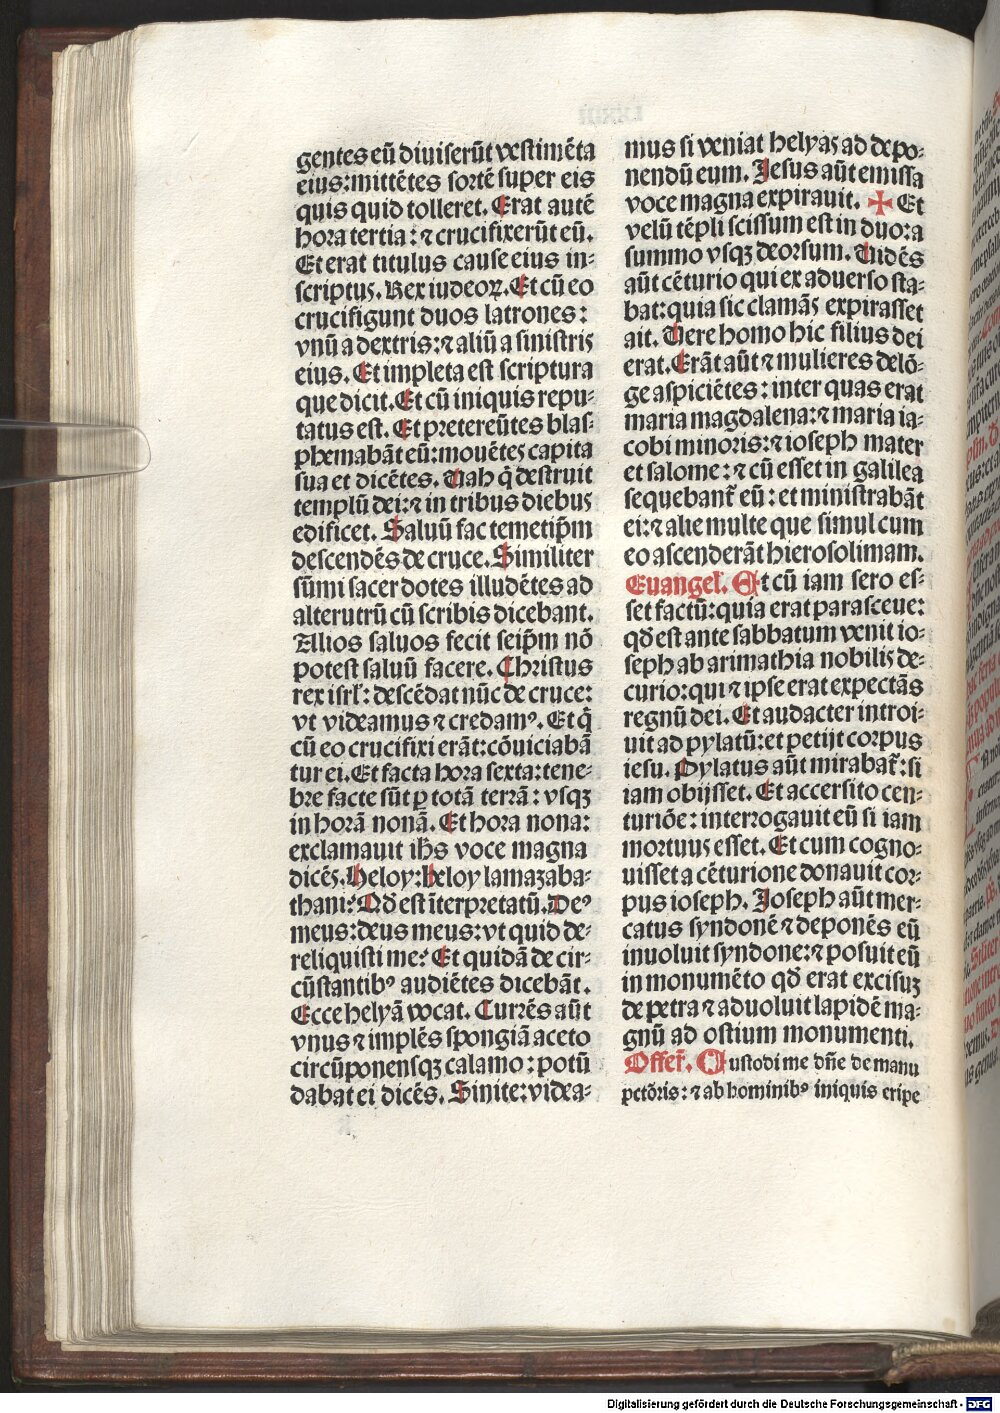 gentes eū diuiserūt vestimēta
eius:mittētes sortē super eis
quis quid tolleret. Erat autē
hora tertia: ⁊ crucifixerūt eū.
Et erat titulus cause eius in⸗
scriptus. Rex iudeoꝝ. Et cū eo
crucifigunt duos latrones:
vnū a dextris:⁊ aliū a sinistris
eius. Et impleta est scriptura
que dicit. Et cū iniquis repu⸗
tatus est. Et pretereūtes blas⸗
phemabāt eū: mouētes capita
sua et dicētes. Uah q̄ destruit
templū dei:⁊ in tribus diebus
edificet. Saluū fac temetip̄m
descendēs de cruce. Similiter
sūmi sacerdotes illudētes ad
alterutrū cū scribis dicebant.
Alios saluos fecit seip̄m nō
potest saluū facere. Christus
rex isrl': descēdat nūc de cruce:
vt videamus ⁊ credamꝰ. Et q̄
cū eo crucifixi erāt:cōuiciabā
tur ei. Et facta hora sexta:tene⸗
bre facte sūt ꝑ totā terrā: vsqꝫ
in horā nonā. Et hora nona:
exclamauit ih̄s voce magna
dicēs. Heloy:heloy lamazaba⸗
thani? Qd̄ est īterpretatū. Deꝰ
meus:deus meus: vt quid de⸗
reliquisti me? Et quidā de cir⸗
cūstantibꝰ audiētes dicebāt.
Ecce helyā vocat. Currēs aūt
vnus ⁊ implēs spongiā aceto
circūponensqꝫ calamo: potū
dabat ei dicēs. Sinite: videa⸗
mus si veniat helyas ad depo⸗
nendū eum. Jesus aūt emissa
voce magna expirauit. ✠ Et
velū tēpli scissum est in duo:a
summo vsqꝫ deorsum. Uidēs
aūt cēturio qui ex aduerso sta⸗
bat:quia sic clamās expirasset
ait. Uere homo hic filius dei
erat. Erāt aūt ⁊ mulieres delō⸗
ge aspiciētes: inter quas erat
maria magdalena:⁊ maria ia⸗
cobi minoris:⁊ ioseph mater
et salome: ⁊ cū esset in galilea
sequebant̄ eū: et ministrabāt
ei:⁊ alie multe que simul cum
eo ascenderāt hierosolimam.
Euangel'. Et cū iam sero es⸗
set factū:quia erat parasceue:
qd̄ est ante sabbatum venit io⸗
seph ab arimathia nobilis de⸗
curio:qui ⁊ ipse erat expectās
regnū dei. Et audacter introi⸗
uit ad pylatū:et petijt corpus
iesu. Pylatus aūt mirabat̄:si
iam obijsset. Et accersito cen⸗
turiōe: interrogauit eū si iam
mortuus esset. Et cum cogno⸗
uisset a cēturione donauit cor⸗
pus ioseph. Joseph aūt mer⸗
catus syndonē ⁊ deponēs eū
inuoluit syndone:⁊ posuit eū
in monumēto qd̄ erat excisuꝫ
de petra ⁊ aduoluit lapidē ma⸗
gnū ad ostium monumenti.
Offer̄. Custodi me dn̄e de manu
pctōris: ⁊ ab hominibꝰ iniquis eripe
Digitalisierung gefördert durch die Deutsche Forschungsgemeinschaft - DFG